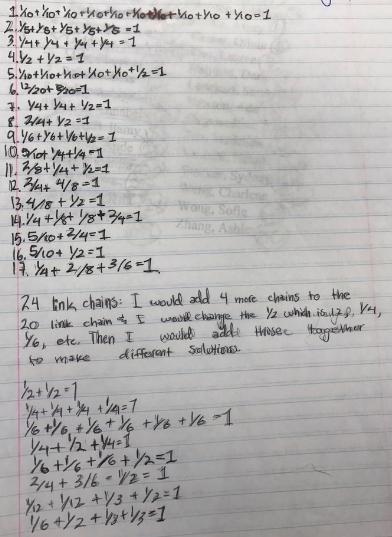 1. 1/10+1/10+1/10+1/10+1/10+1/10+1/10+1/10+1/10 +1/10=1
2. 1/5+1/5+1/5+1/5+1/5=1
3. 1/4+1/4+1/4+1/4=1
4. 1/2+1/2=1
5. 1/10+1/10+1/10+1/10+1/10+1/2=1
6. 12/20+ =1
7. 1/4+1/4+1/2=1
8. 2/4+1/2=1
9. 1/6+1/6+1/6+1/2=1
10. 5/10+1/4+1/4=1
11. 2/8+1/4+1/2=1
12. 2/4+4/8=1
13. 4/8+1/2=1
14. 1/4+1/8+1/8+2/4=1
15. 5/10+2/4=1
16. 5/10+1/2=1
17. 1/4+2/8+3/6=1
24 link chains: I would add 4 more chains to the
20 link chain & I would change the 1/2 which is 12, 1/4,
1/6, etc. Then I would add those together
to make different solutions.
1/2+1/2=1
1/4+1/4+1/4+1/4=1
1/6+1/6+1/6+1/6+1/6+1/6=1
1/4+1/2+1/4=1
1/6+1/6+1/6+1/2=1
2/4+3/6=1/2=1
1/12+1/12+1/3+1/2=1
1/6+1/2+1/3+1/3=1
Wong, Sofie
Zhang,